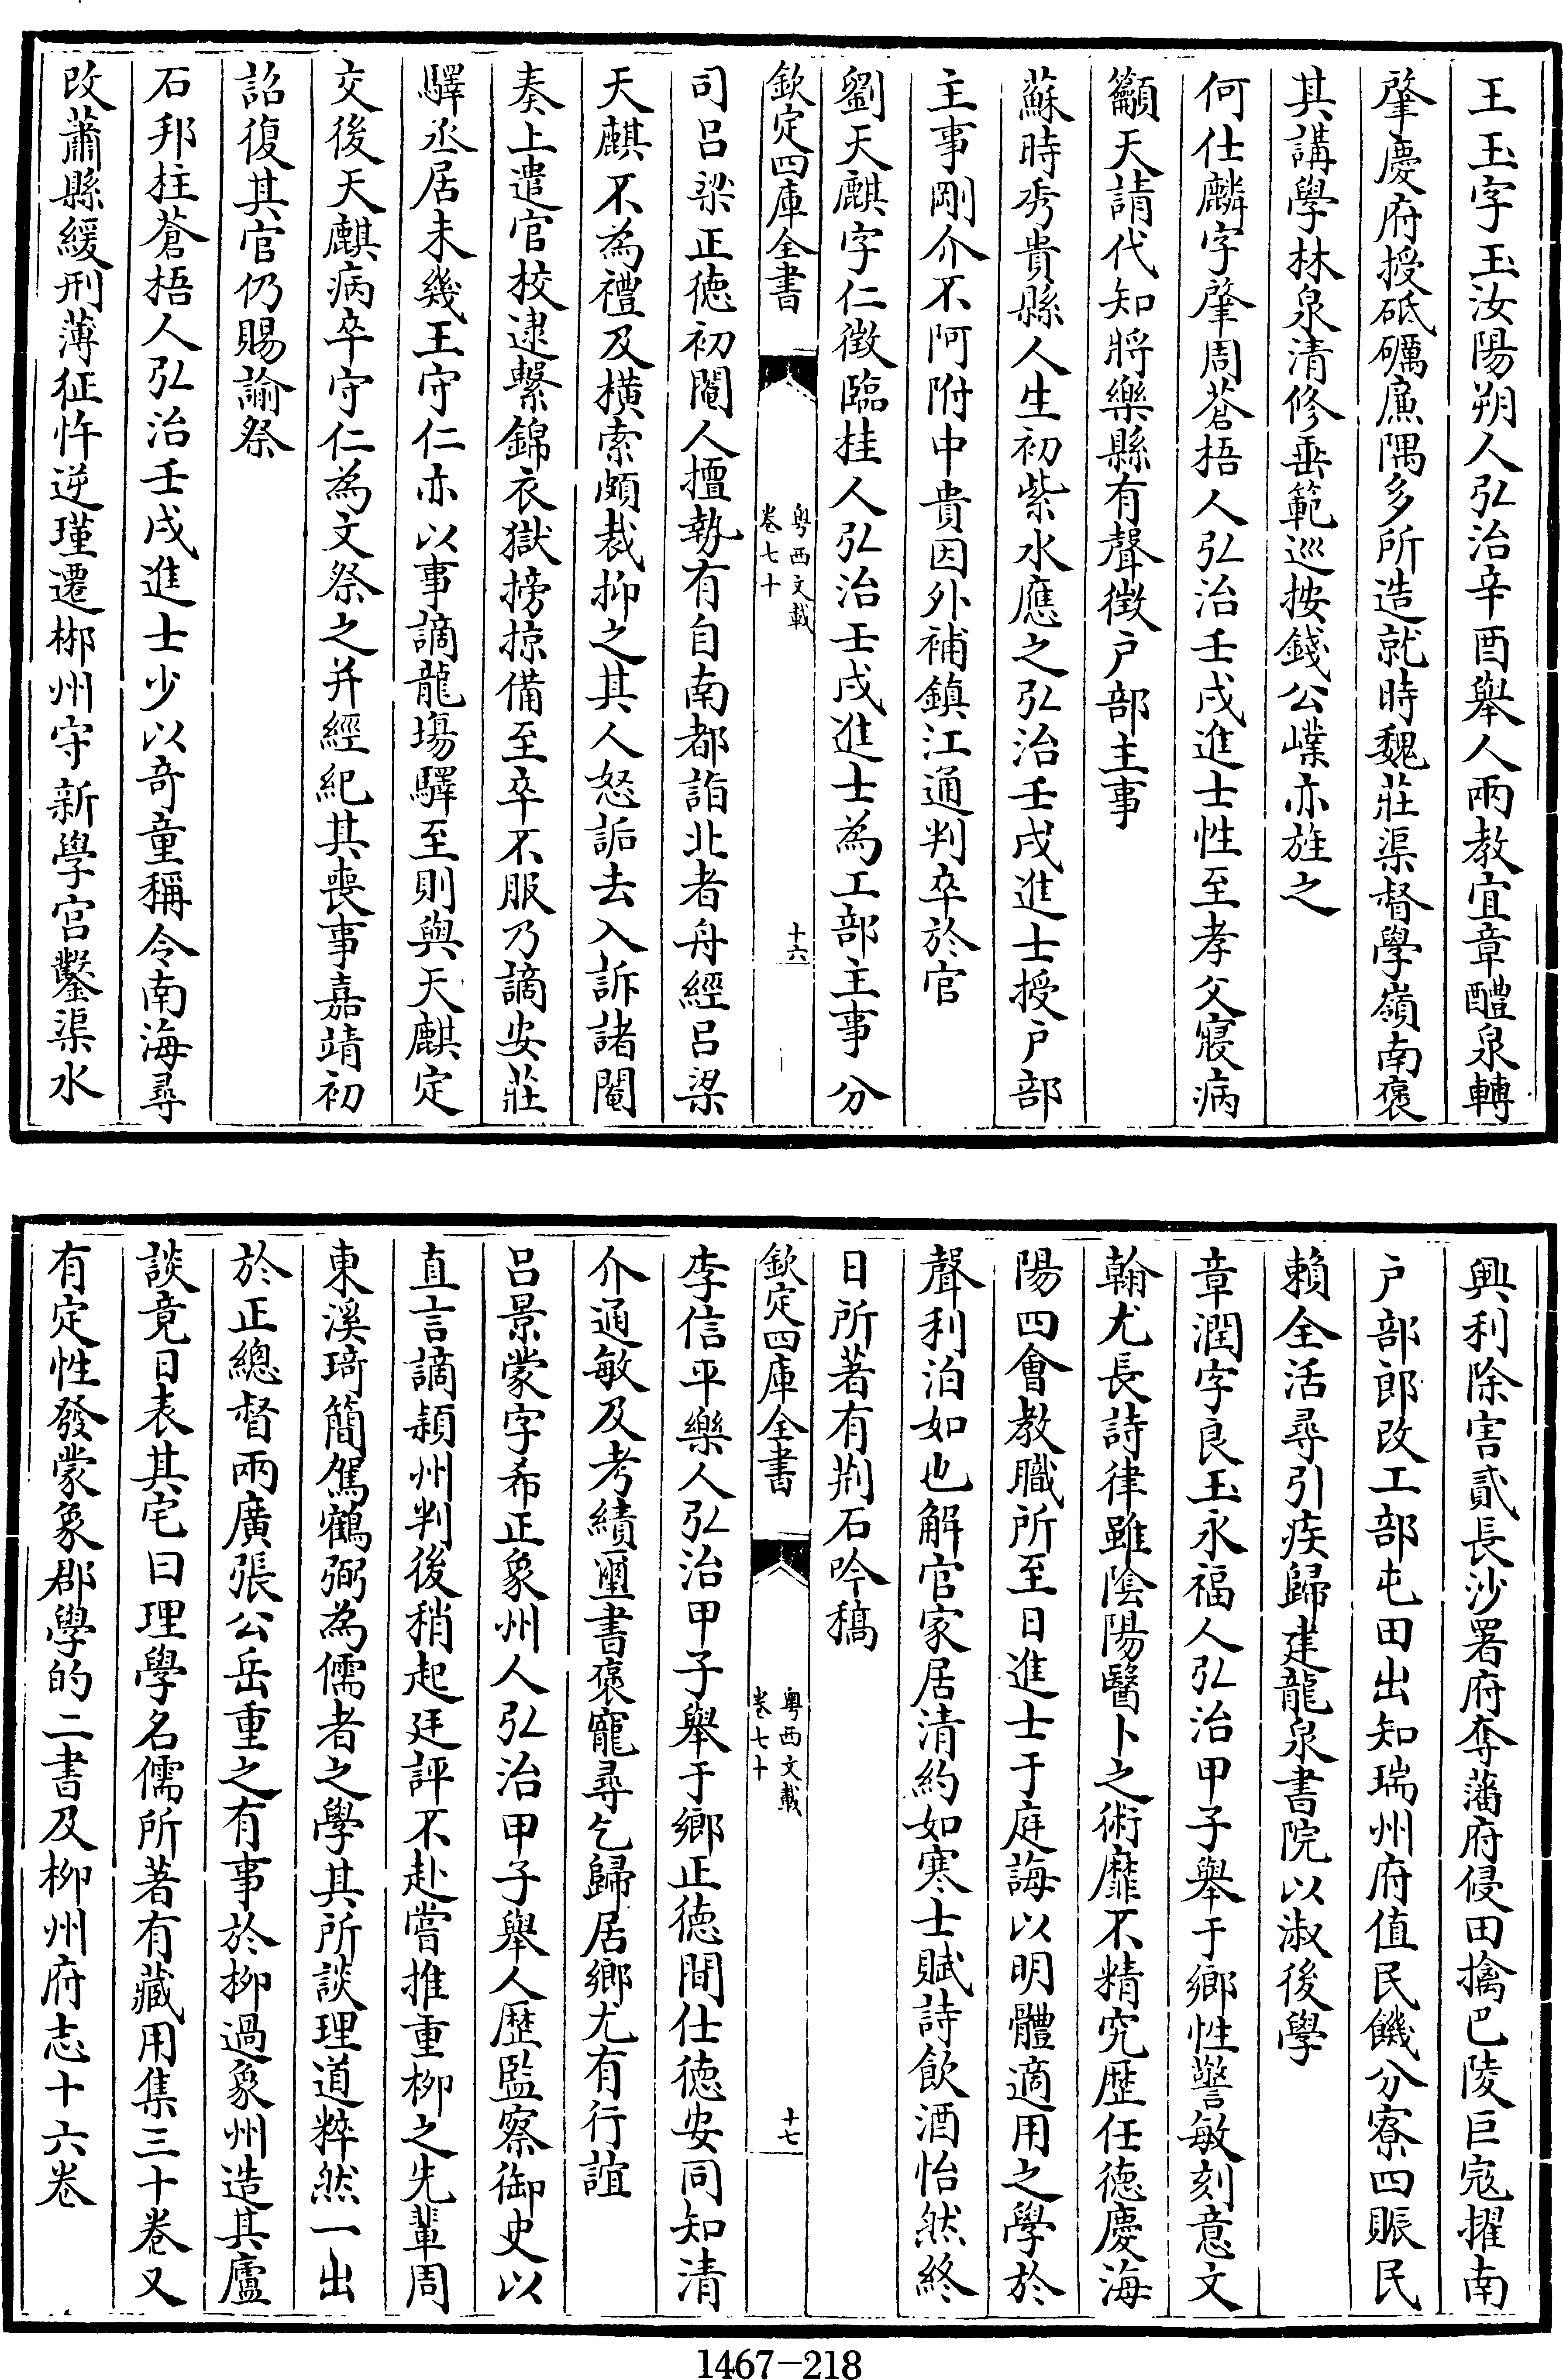 王玉字玉汝陽朔人弘治辛酉舉人兩教宜章醴泉轉
肇慶府授砥礪廉隅多所造就時魏莊渠督學嶺南褒
其講學林泉清修垂範巡按錢公嶫亦旌之
何仕麟字肇周蒼梧人弘治壬戌進士性至孝父寢病
籲天請代知將樂縣有聲徵户部主事
蘇時秀貴縣人生初紫水應之弘治壬戌進士授户部
主事剛介不阿附中貴因外補鎮江通判卒於官
劉天麒字仁徵臨桂人弘治壬戌進士為工部主事分
欽定四庫全書
粤西文載
卷七十
十六
司吕梁正徳初閹人擅執有自南都詣北者舟經吕梁
天麒不為禮及横索頗裁抑之其人怒詬去入訴諸閹
奏上遣官校逮繫錦衣獄搒掠備至卒不服乃謫安莊
驛丞居未幾王守仁亦以事謫龍塲驛至則與天麒定
交後天麒病卒守仁為文祭之并經紀其喪事嘉靖初
詔復其官仍賜諭祭
石邦柱蒼梧人弘治壬戌進士少以奇童稱令南海尋
改蕭縣緩刑薄征忤逆瑾遷郴州守新學宫鑿渠水
興利除害貳長沙署府奪藩府侵田擒巴陵巨寇擢南
户部郎改工部屯田出知瑞州府值民饑分寮四賑民
賴全活尋引疾歸建龍泉書院以淑後學
章潤字良玉永福人弘治甲子舉于鄉性警敏刻意文
翰尤長詩律雖陰陽醫卜之術靡不精究歷任德慶海
陽四會教職所至日進士于庭誨以明體適用之學於
聲利泊如也解官家居清約如寒士賦詩飲酒怡然終
日所著有荆石吟稿
欽定四庫全書
粤西文載
卷七十
十七
李信平樂人弘治甲子舉于鄉正徳間仕徳安同知清
介通敏及考績璽書褒寵尋乞歸居鄉尤有行誼
吕景蒙字希正象州人弘治甲子舉人歷監察御史以
直言謫潁州判後稍起廷評不赴嘗推重柳之先輩周
東溪琦簡駕鶴弼為儒者之學其所談理道粹然一出
於正總督兩廣張公岳重之有事於柳過象州造其廬
談竟日表其宅曰理學名儒所著有藏用集三十卷又
有定性發蒙象郡學的二書及柳州府志十六卷
1467-218